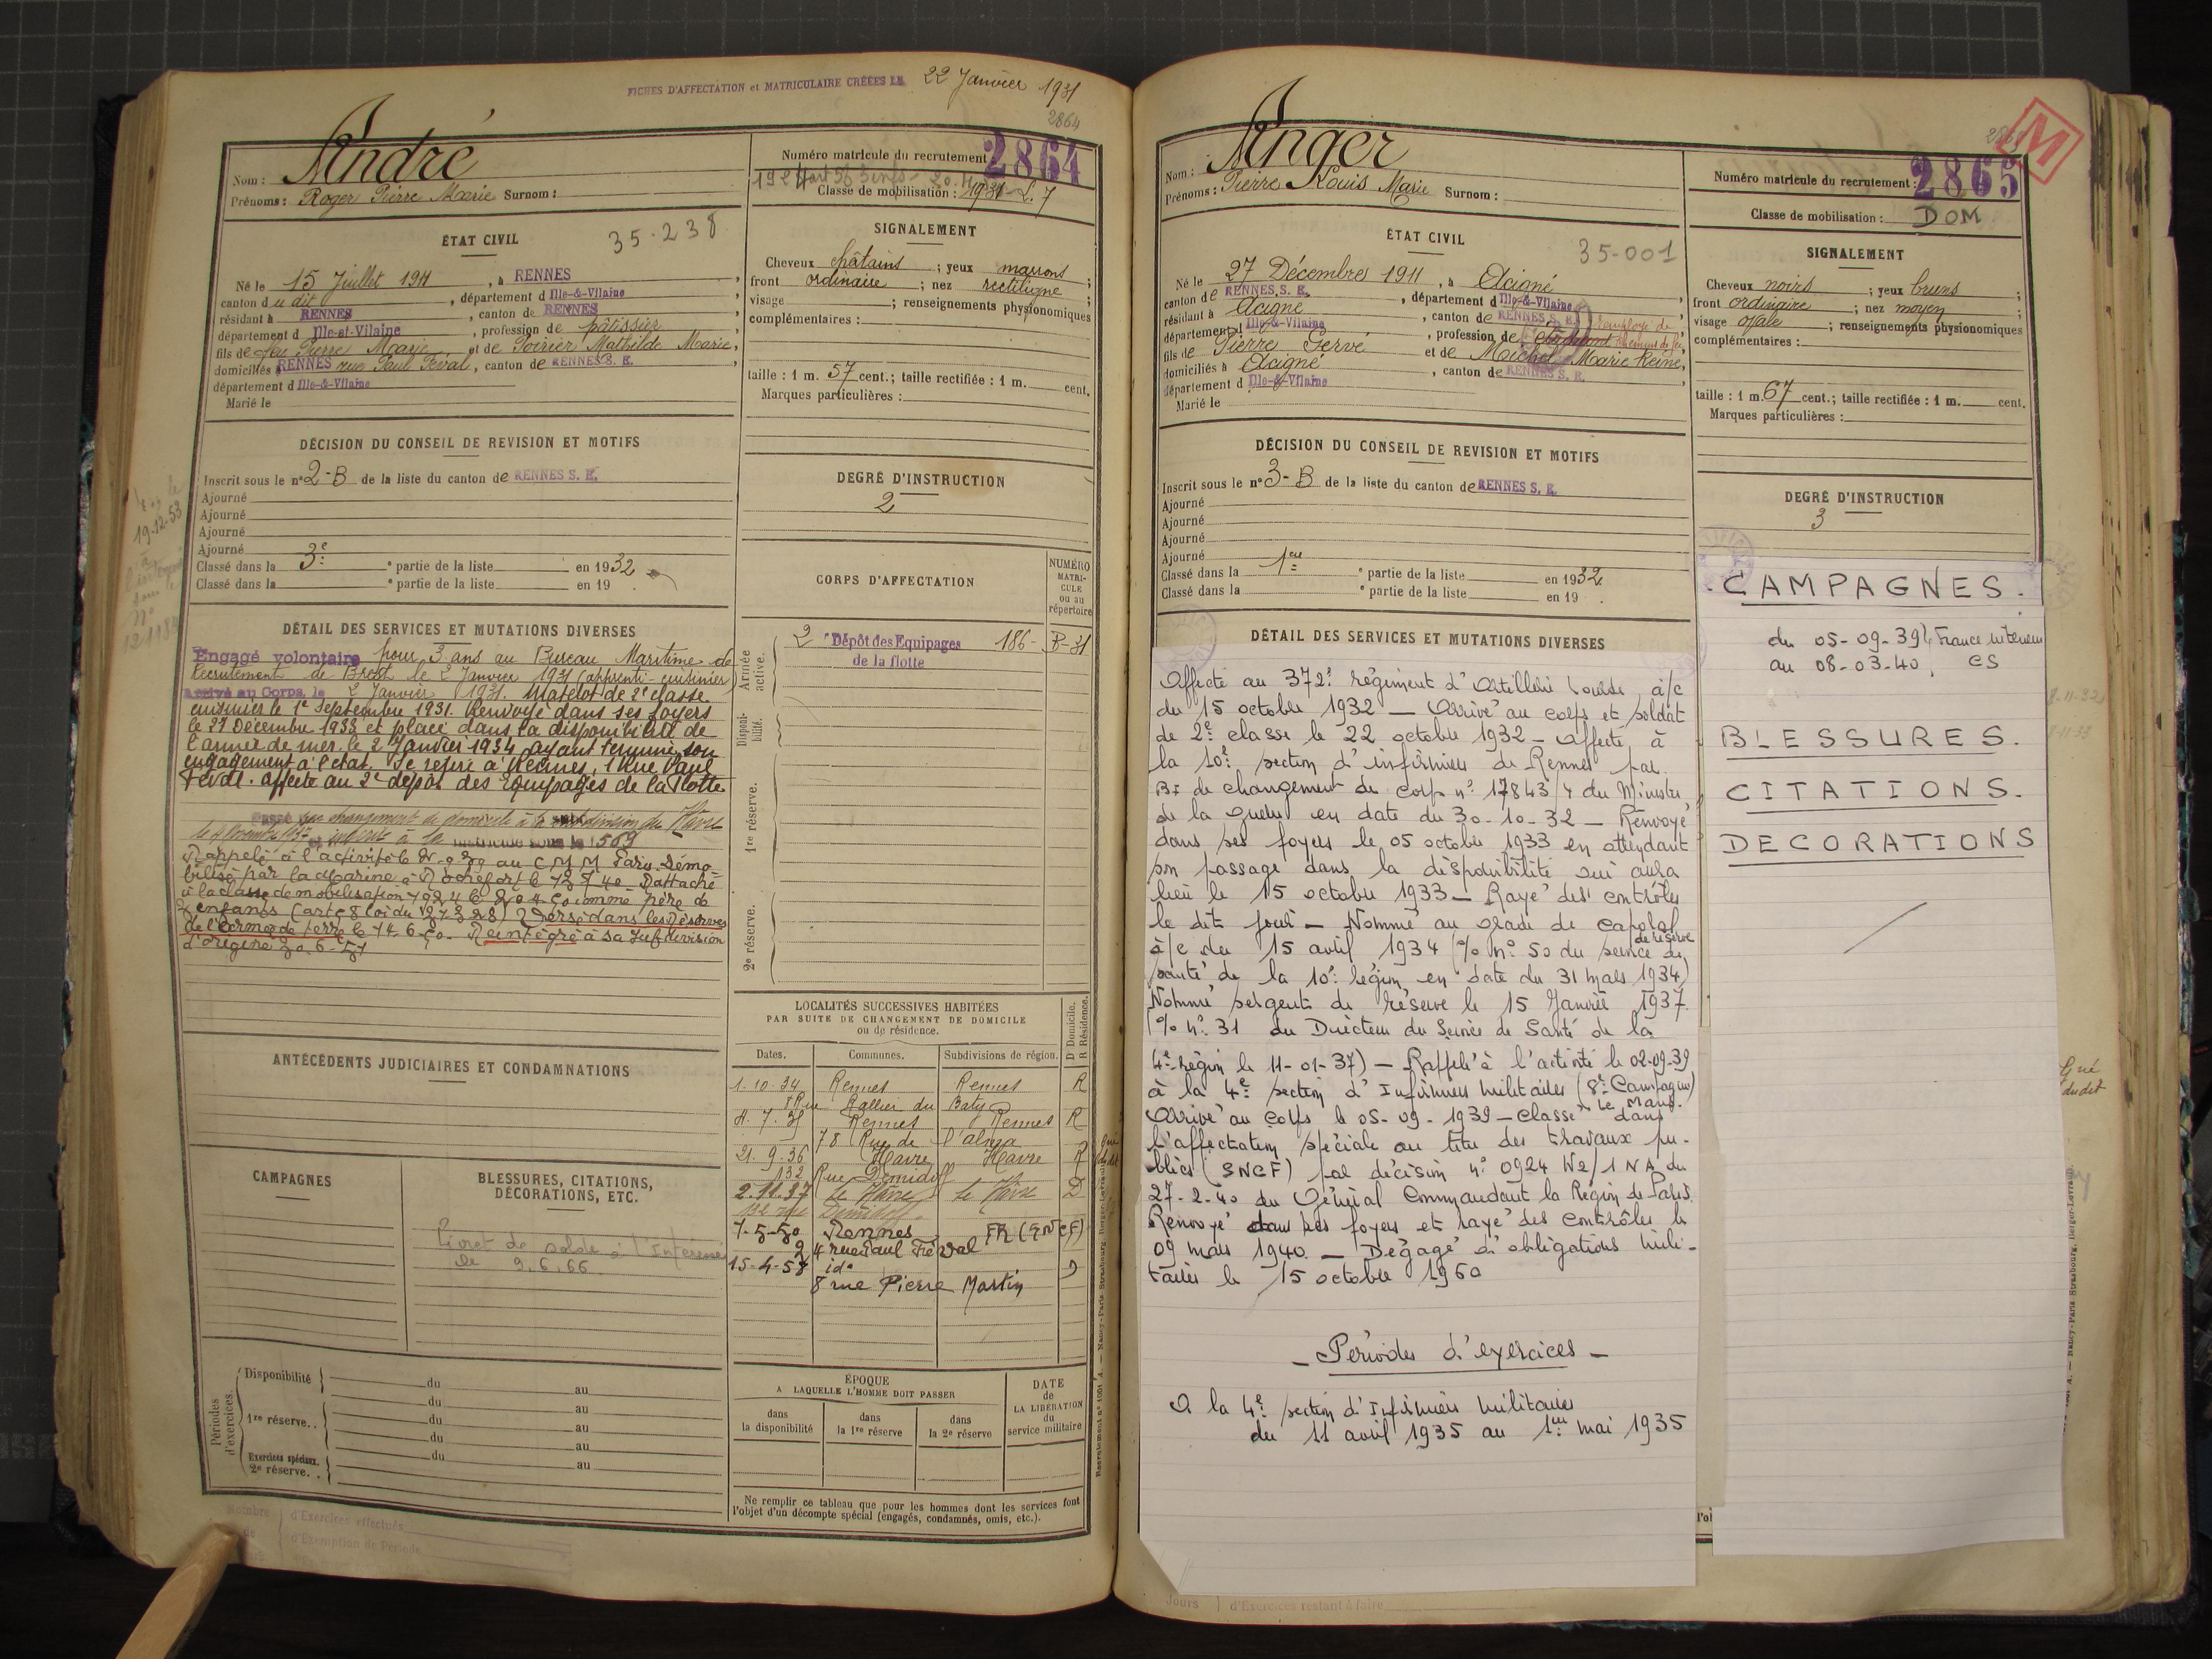 FICHES D'AFFECTATION et MATRICULAIRE CRÉÉES LE 22 Janvier 1931
2864
Nom : André
Prénoms : Roger Pierre Marie Surnom :
Numéro matricule du recrutement 2864
Classe de mobilisation : 1931
ÉTAT CIVIL
35.238
Né le 15 Juillet 1911, à RENNES,
canton du dit, département d Ille-&-Vilaine,
résidant à RENNES, canton de RENNES
département d Ille-et-Vilaine, profession de pâtissier
fils de feu Pierre Marie et de Poirier Mathilde Marie,
domiciliés à RENNES rue Paul Féval, canton de RENNES S. E.
département d Ille-&-Vilaine
Marié le
SIGNALEMENT
Cheveux châtains ; yeux marrons ;
front ordinaire ; nez rectiligne ;
visage ; renseignements physionomiques
complémentaires :
taille : 1 m. 57 cent.; taille rectifiée : 1 m. cent.
Marques particulières :
DÉCISION DU CONSEIL DE REVISION ET MOTIFS
Inscrit sous le n° 2-B de la liste du canton de RENNES S. E.
Ajourné
Ajourné
Ajourné
Ajourné
Classé dans la 3e ° partie de la liste en 1932
Classé dans la ° partie de la liste en 19 .
DEGRÉ D'INSTRUCTION
2
CORPS D'AFFECTATION
NUMÉRO
MATRI-
CULE
ou au
répertoire
Armée active.
2e Dépôt des Equipages 186- B-31
de la flotte
Disponi-
bilité.
1re réserve.
2e réserve.
DÉTAIL DES SERVICES ET MUTATIONS DIVERSES
Engagé volontaire pour 3 ans au Bureau Maritime de
Recrutement de Brest le 2 Janvier 1931 (apprenti-cuisinier)
arrivé au Corps, le 2 Janvier 1931. Matelot de 2e classe
cuisinier le 1er Septembre 1931. Renvoyé dans ses foyers
le 21 Décembre 1933 et placé dans la disponibilité de
l'armée de mer le 2 Janvier 1934 ayant terminé son
engagement à l'état. Se retire à Rennes, 1 Rue Paul
Féval. affecté au 2e dépôt des Equipages de la Flotte
Passé par changement de domicile à la subdivision du Havre
Rappelé à l'activité le au C M M Paris. Démo-
bilisé par la Marine à Rochefort le Rattaché
à la classe de mobilisation comme père de
2 enfants Versé dans les réserves
de l'Armée de terre le 14-6-50. Réintégré à sa subdivision
d'origine
ANTÉCÉDENTS JUDICIAIRES ET CONDAMNATIONS
LOCALITÉS SUCCESSIVES HABITÉES
PAR SUITE DE CHANGEMENT DE DOMICILE
ou de résidence.
D Domicile.
R Résidence.
Dates. Communes. Subdivisions de région.
1.10.34 Rennes Rennes R
Rue Rallier du Baty
Rennes Rennes R
78 Rue de l'alma
21.9.36 Havre Havre R
132 Rue Demidoff
2.11.37 le Havre le Havre D
132 rue Demidoff
7-5-50 Rennes FR (SNCF)
4 rue Paul Féval
15-4-58 id° D
8 rue Pierre Martin
CAMPAGNES
BLESSURES, CITATIONS,
DÉCORATIONS, ETC.
Livret de solde à l'Intéressé
le 9.6.66
Périodes d'exercices.
Disponibilité du au
du au
1re réserve. . du au
du au
Exercices spéciaux. du au
2e réserve. .
ÉPOQUE
A LAQUELLE L'HOMME DOIT PASSER
dans
la disponibilité
dans
la 1re réserve
dans
la 2e réserve
DATE
de
LA LIBÉRATION
du
service militaire
Ne remplir ce tableau que pour les hommes dont les services font
l'objet d'un décompte spécial (engagés, condamnés, omis, etc.).
Nombre
de
d'Exercices effectués
d'Exemption de Période
M
Nom : Anger
Prénoms : Pierre Louis Marie Surnom :
Numéro matricule du recrutement : 2865
Classe de mobilisation : DOM
ÉTAT CIVIL
35-001
Né le 27 Décembre 1911, à Acigné
canton de RENNES S. E., département d Ille-&-Vilaine,
résidant à Acigné, canton de RENNES S. E.
département d Ille-&-Vilaine, profession de étudiant employé de chemin de fer
fils de Pierre Gervé et de Michel Marie Reine,
domiciliés à Acigné, canton de RENNES S. E.
département d Ille-&-Vilaine
Marié le
SIGNALEMENT
Cheveux noirs ; yeux bruns ;
front ordinaire ; nez moyen ;
visage ovale ; renseignements physionomiques
complémentaires :
taille : 1 m. 67 cent.; taille rectifiée : 1 m. cent.
Marques particulières :
DÉCISION DU CONSEIL DE REVISION ET MOTIFS
Inscrit sous le n° 3-B de la liste du canton de RENNES S. E.
Ajourné
Ajourné
Ajourné
Ajourné
Classé dans la 1ère ° partie de la liste en 1932
Classé dans la ° partie de la liste en 19 .
DEGRÉ D'INSTRUCTION
3
DÉTAIL DES SERVICES ET MUTATIONS DIVERSES
Affecté au 372e régiment d'Artillerie lourde à/c
du 15 octobre 1932 — Arrivé au corps et soldat
de 2e classe le 22 octobre 1932 — affecté à
la 10e section d'infirmiers de Rennes par
BI de changement de corps n° 17843/4 du Ministre
de la Guerre en date du 30-10-32 — Renvoyé
dans ses foyers le 05 octobre 1933 en attendant
son passage dans la disponibilité qui aura
lieu le 15 octobre 1933 — Rayé des contrôles
le dit jour — Nommé au grade de caporal
de réserve
à/c du 15 avril 1934 (% n° 50 du service de
santé de la 10e région en date du 31 mars 1934)
Nommé sergent de réserve le 15 Janvier 1937
(% n° 31 du Directeur du Service de Santé de la
4e région le 11-01-37) — Rappelé à l'activité le 02-09-39
à la 4e section d'Infirmiers militaires (8e Compagnie)
Le Mans.
Arrivé au corps le 05-09-1939 — Classé dans
l'affectation spéciale au titre des travaux pu-
blics (SNCF) par décision n° 0924 W2/1 NA du
27-2-40 du Général Commandant la Région de Paris.
Renvoyé dans ses foyers et rayé des contrôles le
09 mars 1940 — Dégagé d'obligations mili-
taires le 15 octobre 1960
- Périodes d'exercices -
A la 4e section d'Infirmiers militaires
du 11 avril 1935 au 1er mai 1935
CAMPAGNES.
du 05-09-39 } France intérieur
au 08-03-40 CS
BLESSURES.
CITATIONS.
DECORATIONS
Jours d'Exercices restant à faire